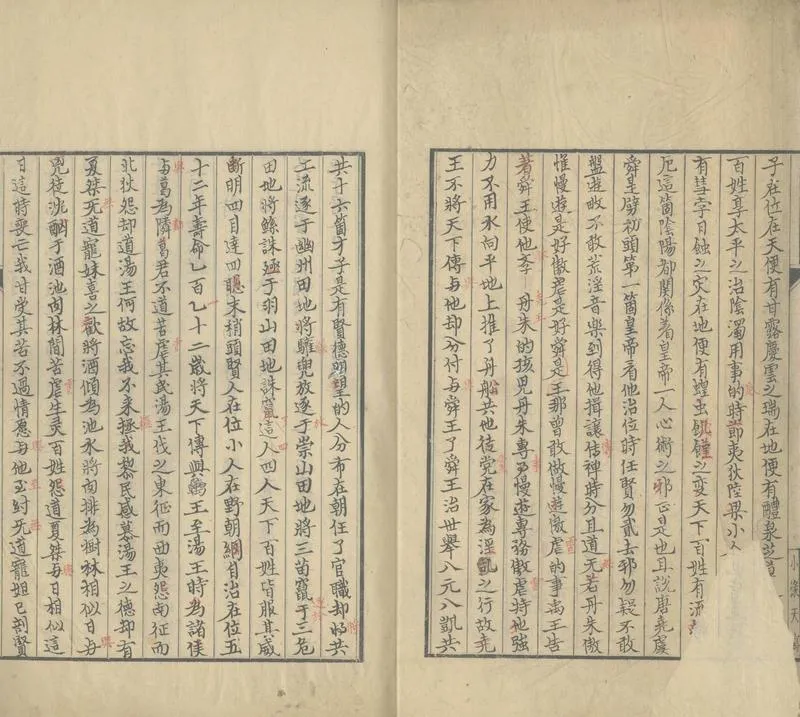 子在位在天便有甘露慶雲之瑞在地便有醴泉芝
百姓享太平之治陰濁用事的時節夷狄陸梁小
有彗孛日蝕之灾在地便有蝗虫饑饉之變天下百姓有流
厄這箇陰陽都関係着皇帝一人心術之邪正是也且說唐堯虞
舜是劈初頭第一箇皇帝看他治位時任賢勿貳去邪勿疑不敢
盤遊敀不敢荒淫音樂到得他揖讓傳神時分且道无若丹朱傲
惟慢遊是好傲虐是好舜是王那曾敢做慢遊傲虐的事禹王告
著舜王使他李 丹朱的孩児丹朱專事慢遊專務傲虐時他強
力不用水向平地上推了舟船共他徒党在家為淫亂之行故堯
王不將天下傳与他却分付与舜王了舜王治世舉八元八凱共
共十六箇才子是有賢德明望的人分布在朝任了官職却將共
工流逐于幽州田地將驩兜放逐于崇山田地將三苗竄于三危
田地將鯀誅殛于羽山田地誅竄這人四人天下百姓皆服其威
斷明四目達四聰末稍頭賢人在位小人在野朝綱自治在位五
十二年壽命乙百乙十二歲將天下傳與禹王至湯王時為諸侯
与葛為隣葛君不道苦虐其民湯王伐之東征而西夷怨南征而
北狄怨却道湯王何故忘我不來拯我黎民感慕湯王之德却有
夏桀无道寵妹喜之歡將酒傾為池水將肉排為樹林相似日与
兇徒洮酗于酒池肉林間苦虐生灵百姓怨道夏桀与日相似這
日這時喪亡我甘受其苦不過情愿与他至紂无道寵妲己剖賢